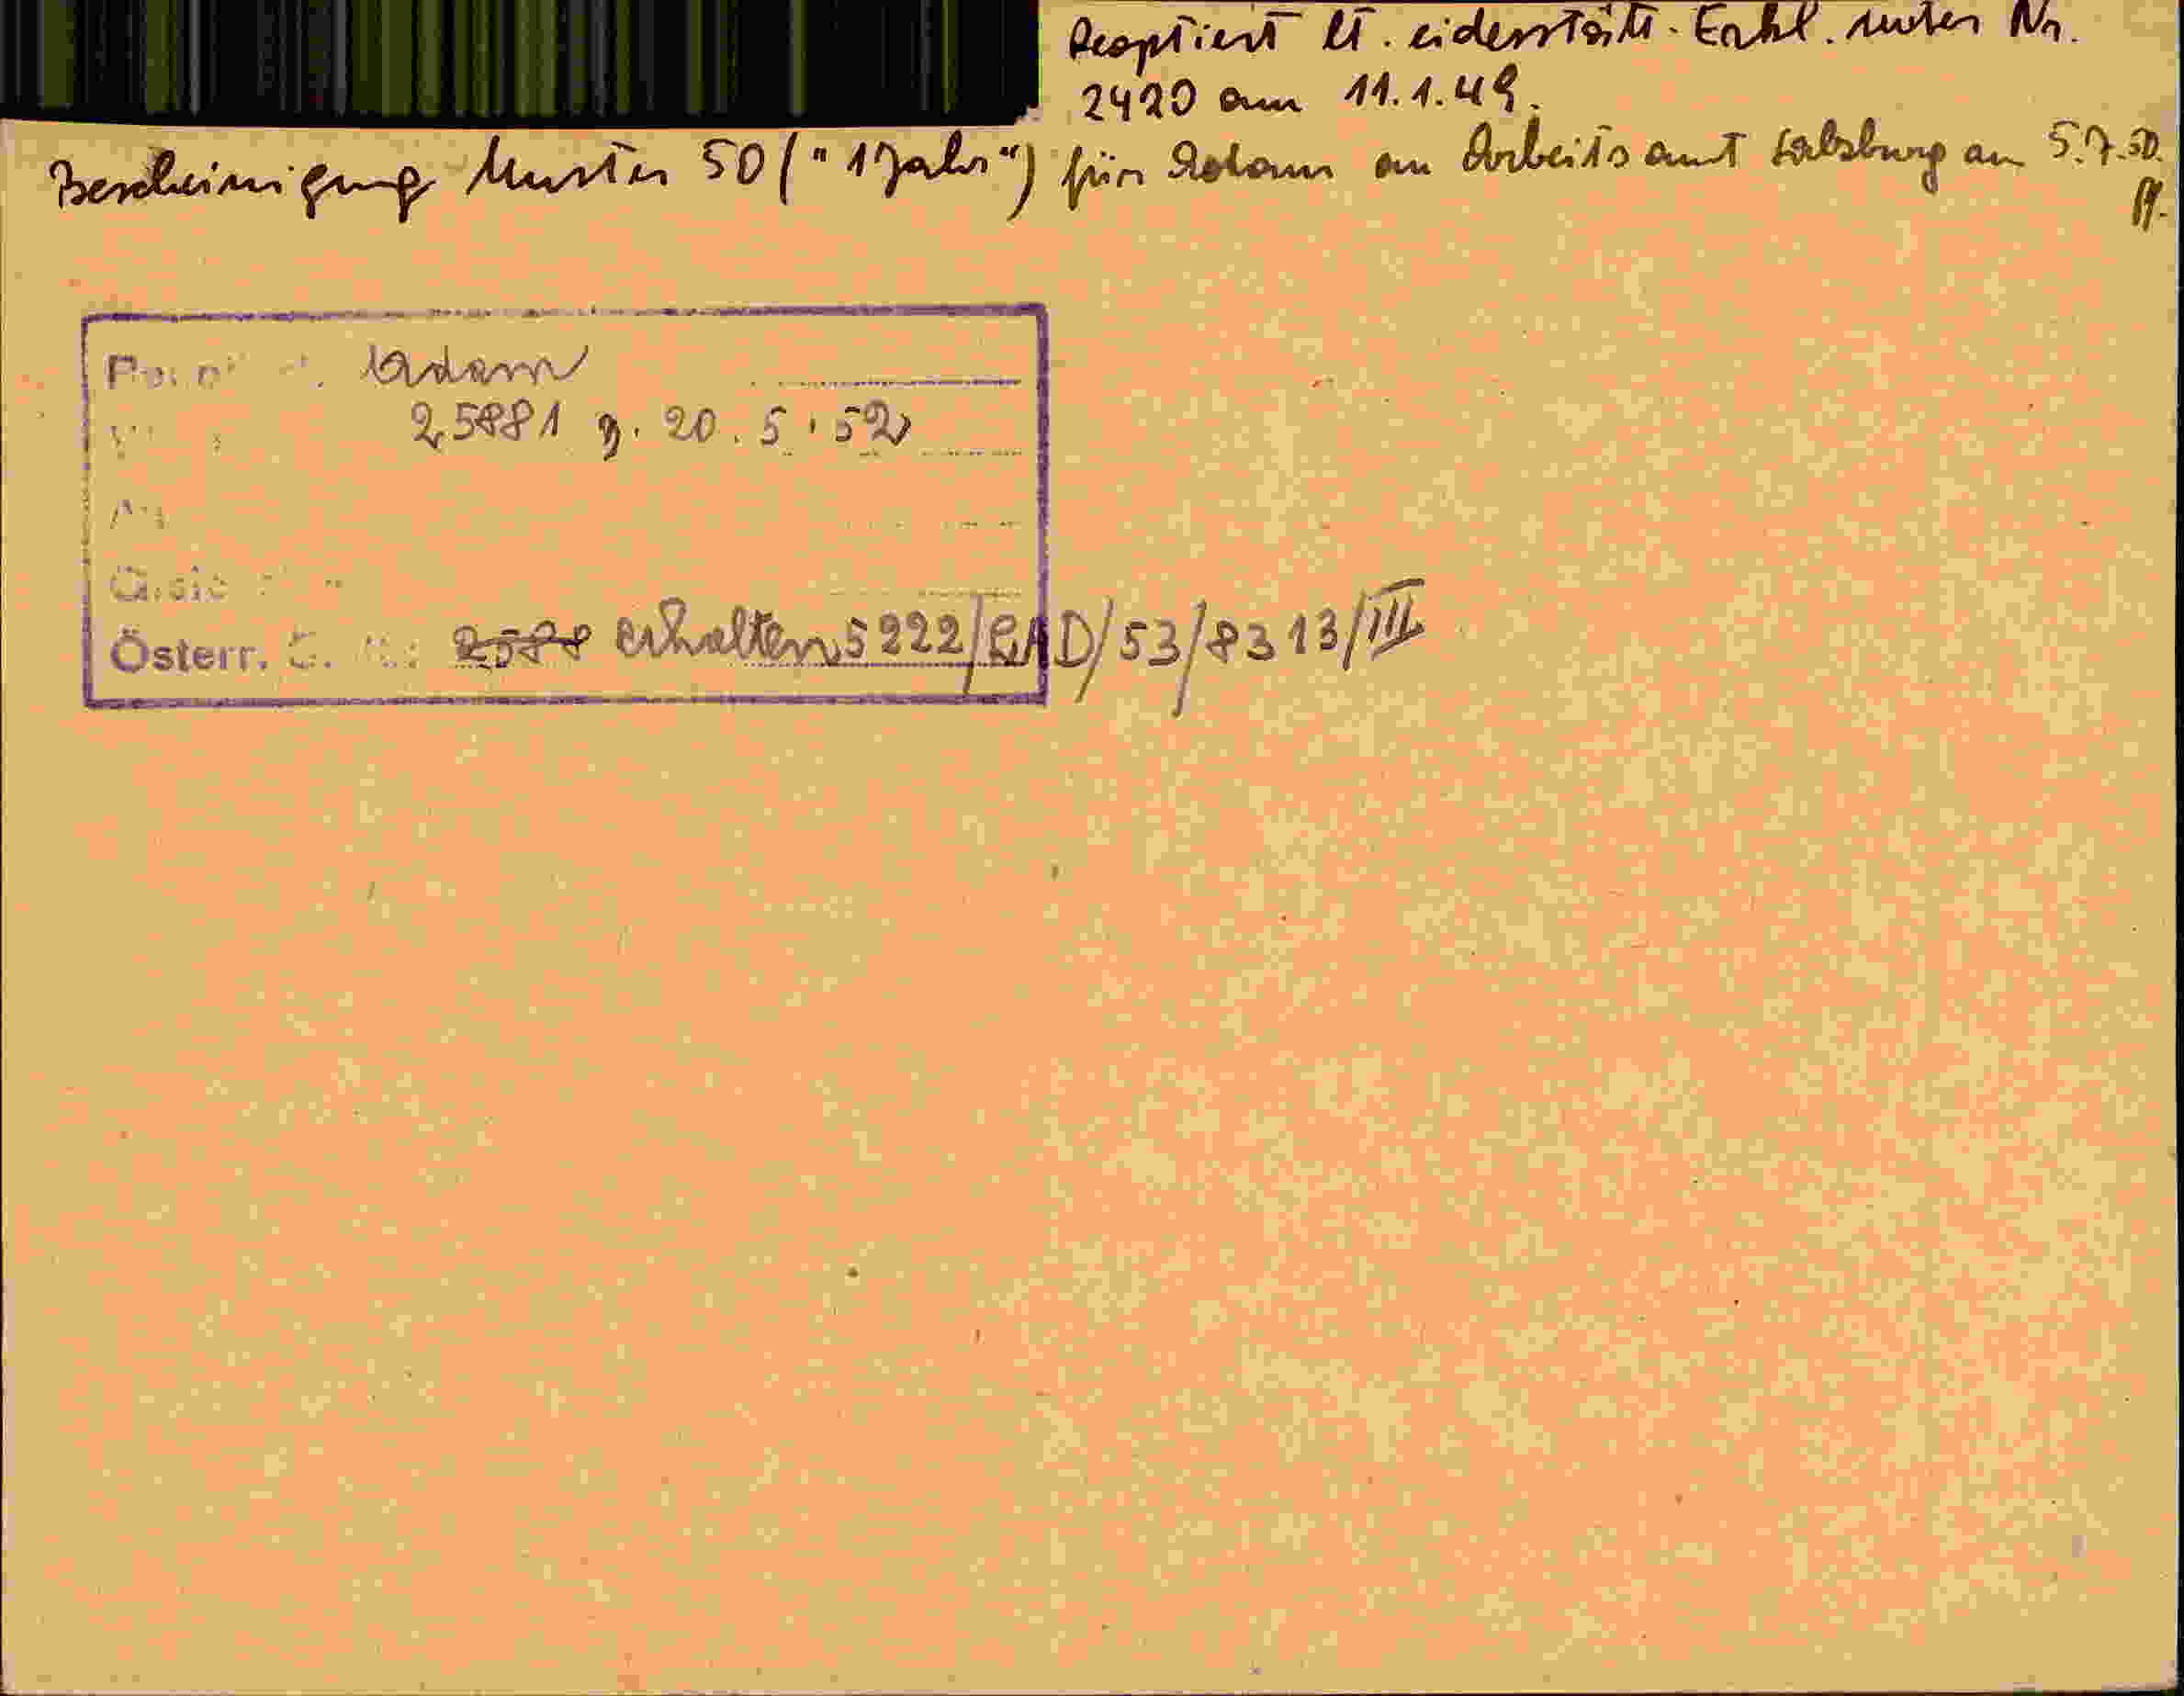 Reoptiert lt. eidesstattl. Erkl. unter Nr.
2420 am 11.1.49.
Bescheinigung Muster 50 ("1 Jahr") für Adam an Arbeitsamt Salzburg am 5.7.50.
Adam
25881 v. 20.5.52
Österr. erhalten 5222/LAD/53/8313/III